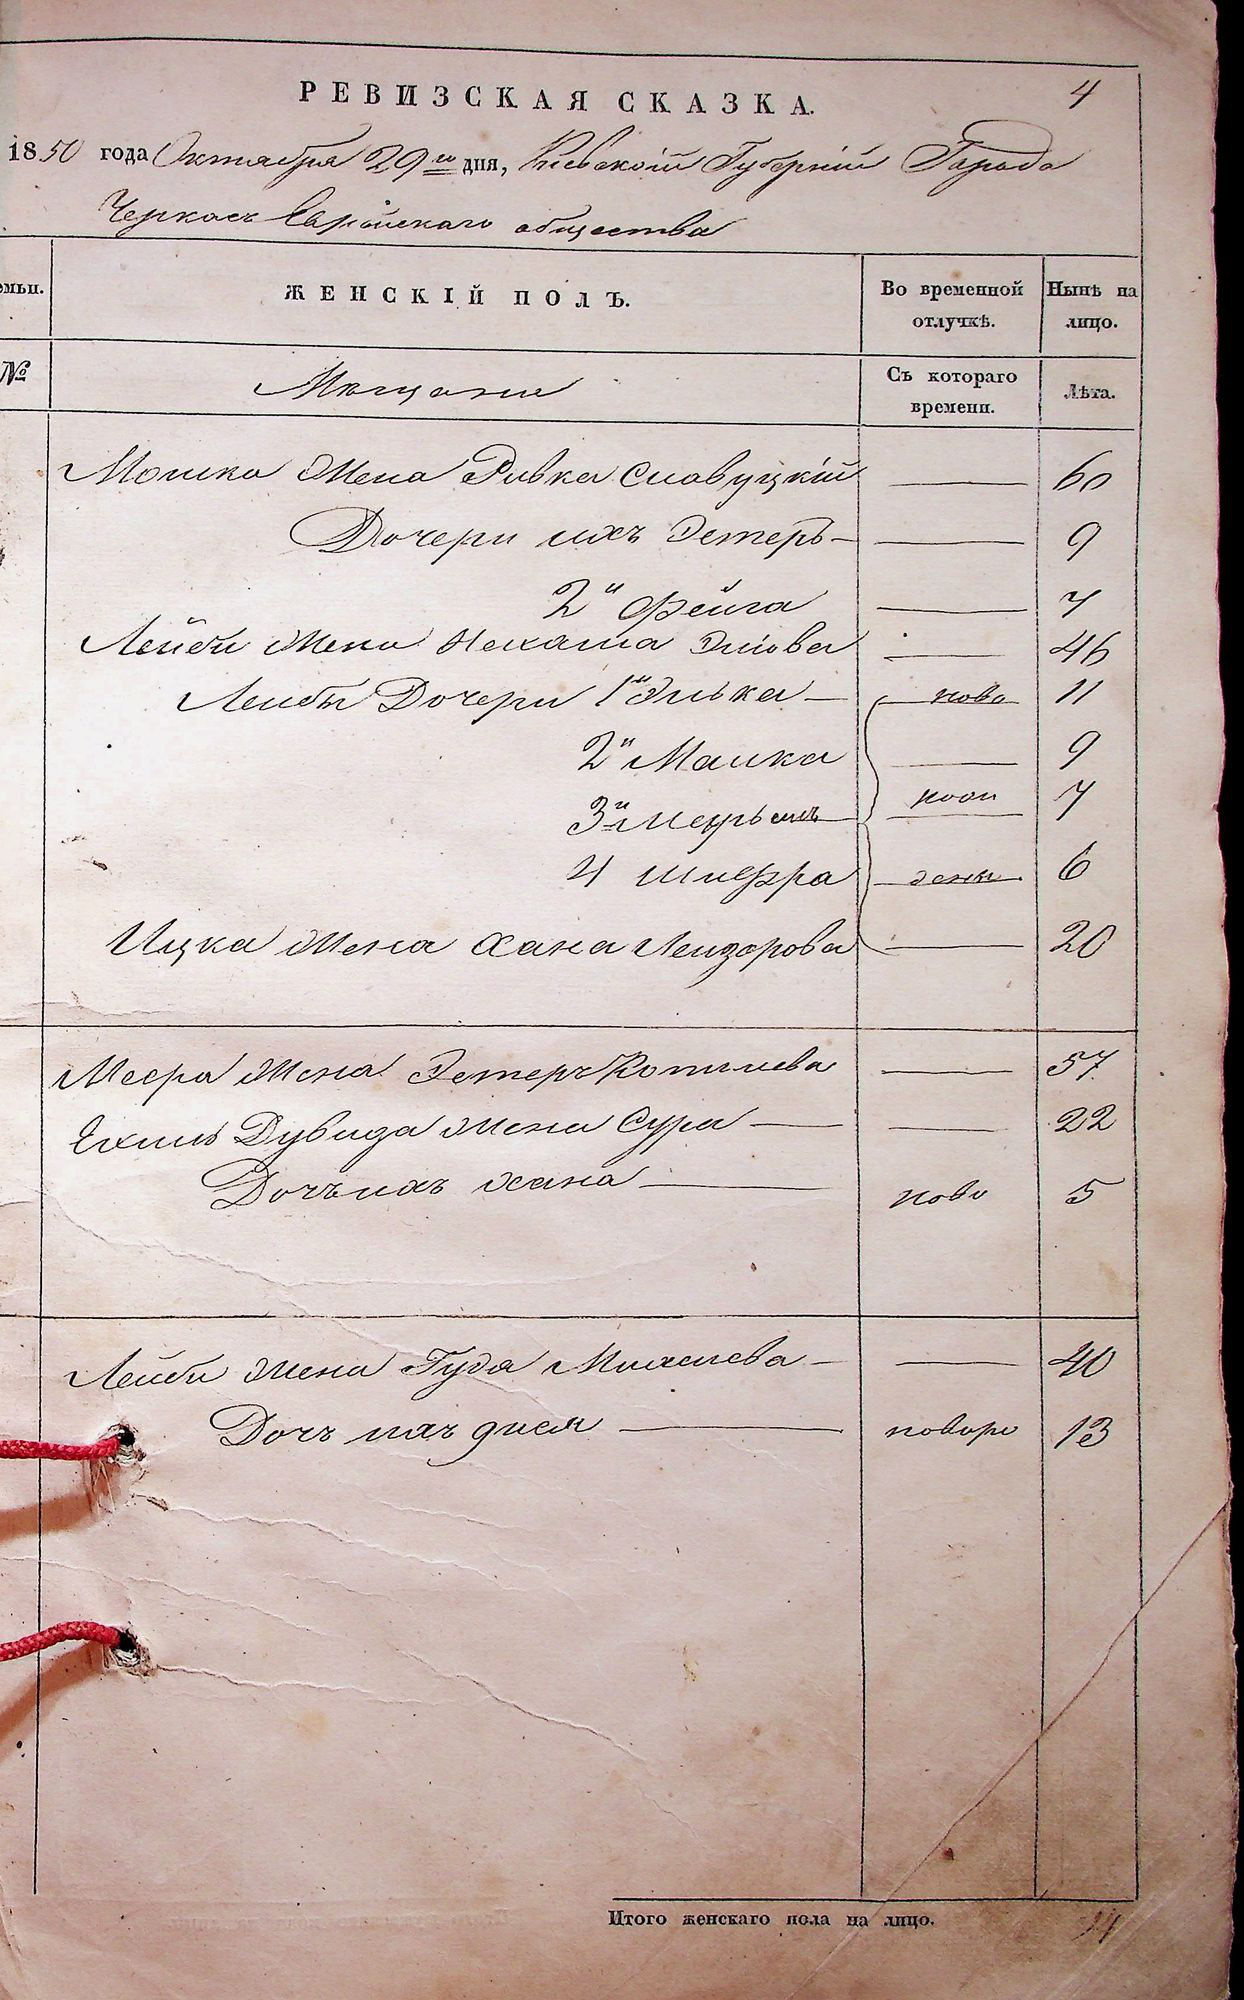 4
РЕВИЗСКАЯ СКАЗКА.
1850 года Октября 29го дня, Киевскiй Губернiи Города
Черкасъ Еврейскаго общества
емьи. ЖЕНСКІЙ ПОЛЪ. Во временной отлучкѣ. Нынѣ на лицо.
№ Мещане Съ котораго времени. Лѣта.
Мошка Жена Ривка Славуцкiй — 60
Дочери ихъ Эстеръ — 9
2я Фейга — 7
Лейби Жена Нехама — 46
Лейбы Дочери 1я Элька — ново 11
2я Малка — 9
3я 7
4 Шифра — 6
Ицка Жена Хана Лейзорова — 20
Меера Жена Эстеръ — 57
Дувида Жена Сура — 22
Дочь ихъ Хана — ново 5
Лейби Жена Гудя — 40
Дочь ихъ — 13
Итого женскаго пола на лицо. 14